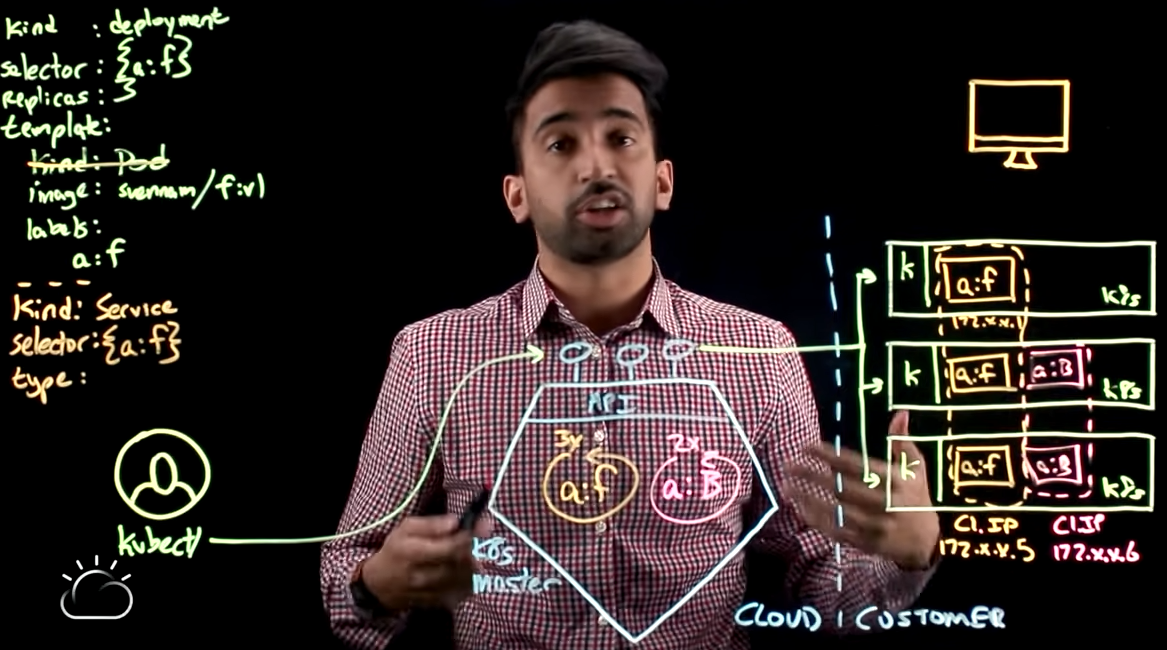 kind : deployment
selector : {a:f}
Replicas : 3
template:
kind: Pod
image: svennam/f:v1
labels:
a:f
Kind: Service
selector:{a:f}
type :
kubectl
API
3x
a:f
2x
a:B
K8s
master
CLOUD
CUSTOMER
k
a:f
K8s
172.x.x.1
k
a:f
a:B
K8s
k
a:f
a:B
K8s
Cl.IP
172.x.x.5
Cl.IP
172.x.x.6